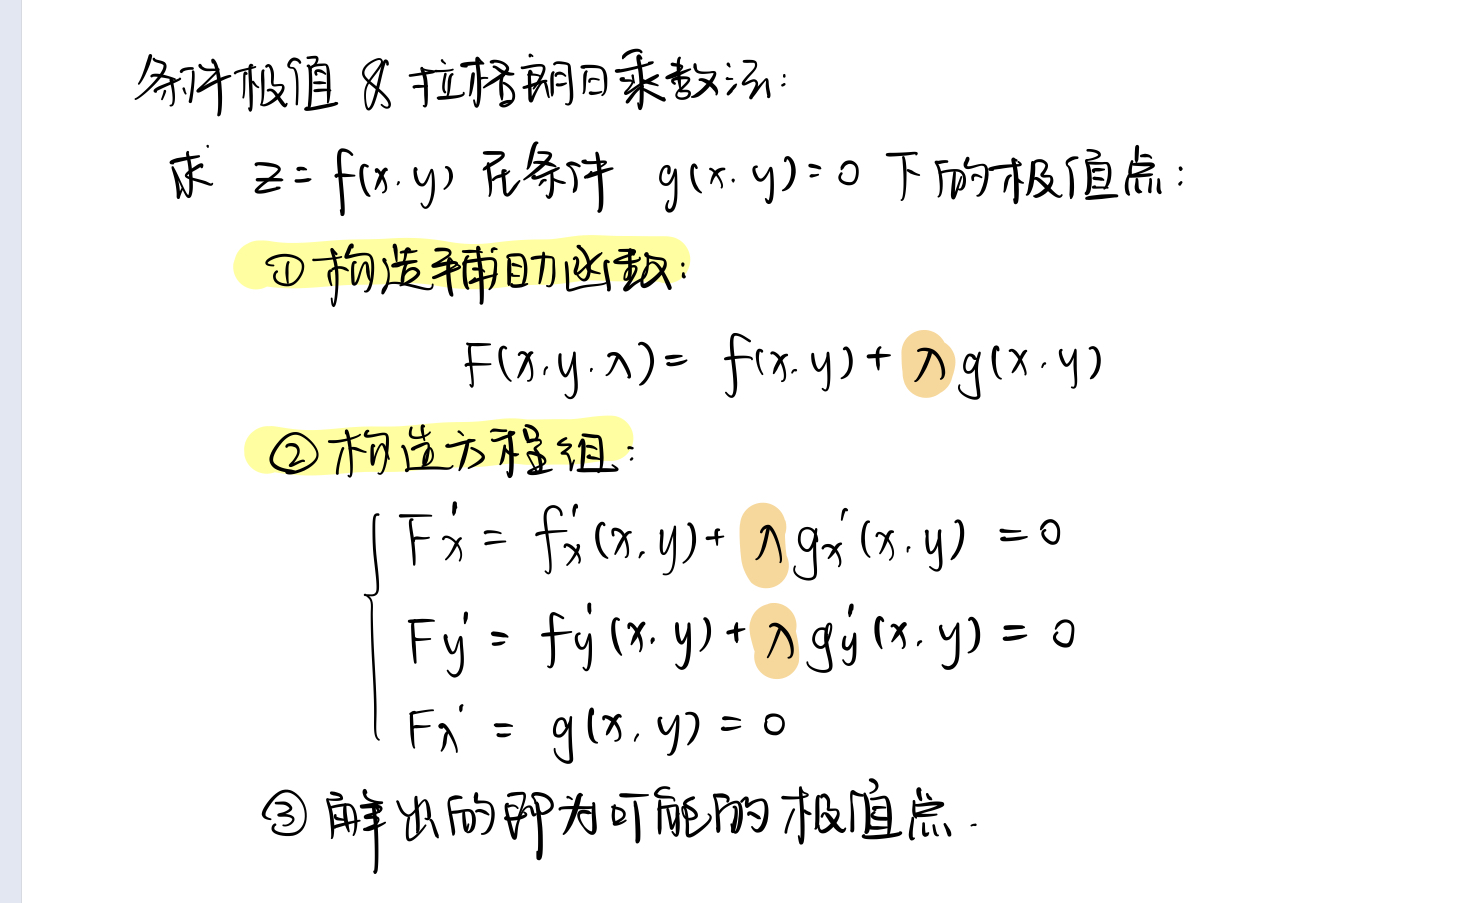 条件极值 & 拉格朗日乘数法:
求 z = f(x.y) 在条件 g(x.y)=0 下的极值点:
①构造辅助函数:
F(x.y.λ) = f(x.y) + λg(x.y)
②构造方程组:
Fx' = fx'(x.y) + λgx'(x.y) = 0
Fy' = fy'(x.y) + λgy'(x.y) = 0
Fλ' = g(x.y) = 0
③解出的即为可能的极值点.